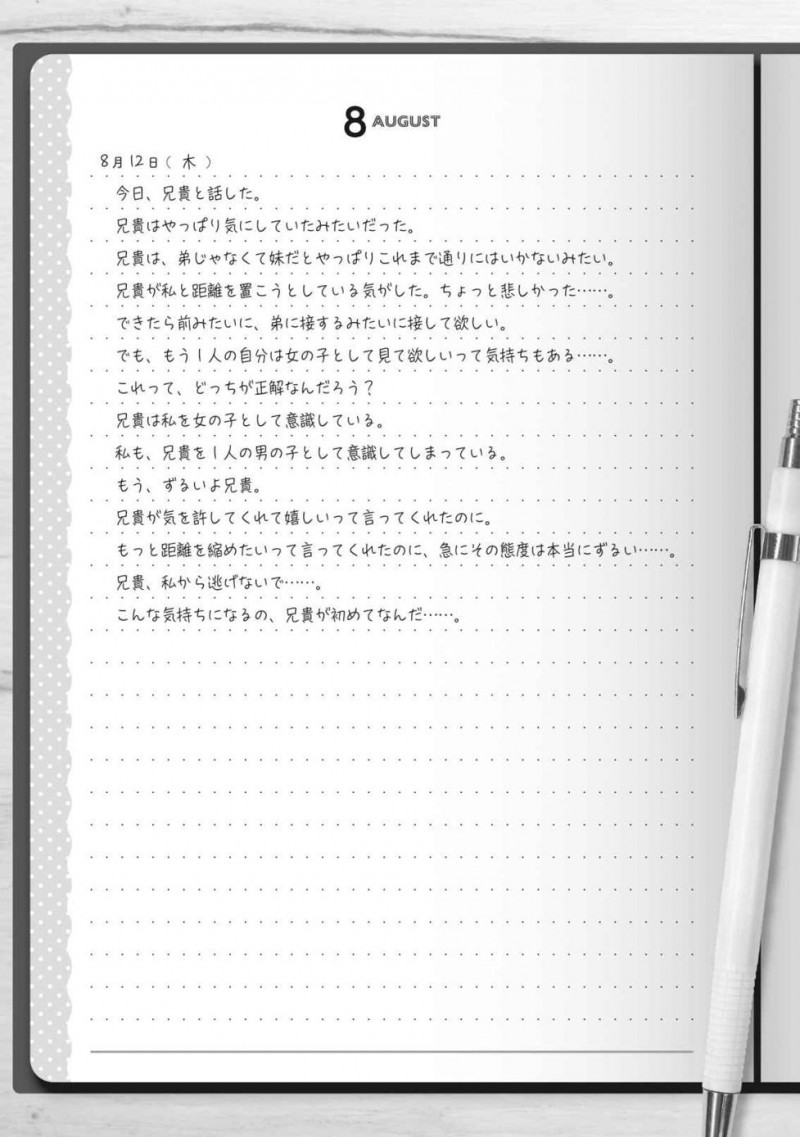 8 AUGUST
8月12日(木)
今日、兄貴と話した。
兄貴はやっぱり気にしていたみたいだった。
兄貴は、弟じゃなくて妹だとやっぱりこれまで通りにはいかないみたい。
兄貴が私と距離を置こうとしている気がした。ちょっと悲しかった……。
できたら前みたいに、弟に接するみたいに接して欲しい。
でも、もう1人の自分は女の子として見て欲しいって気持ちもある……。
これって、どっちが正解なんだろう?
兄貴は私を女の子として意識している。
私も、兄貴を1人の男の子として意識してしまっている。
もう、ずるいよ兄貴。
兄貴が気を許してくれて嬉しいって言ってくれたのに。
もっと距離を縮めたいって言ってくれたのに、急にその態度は本当にずるい……。
兄貴、私から逃げないで……。
こんな気持ちになるの、兄貴が初めてなんだ……。